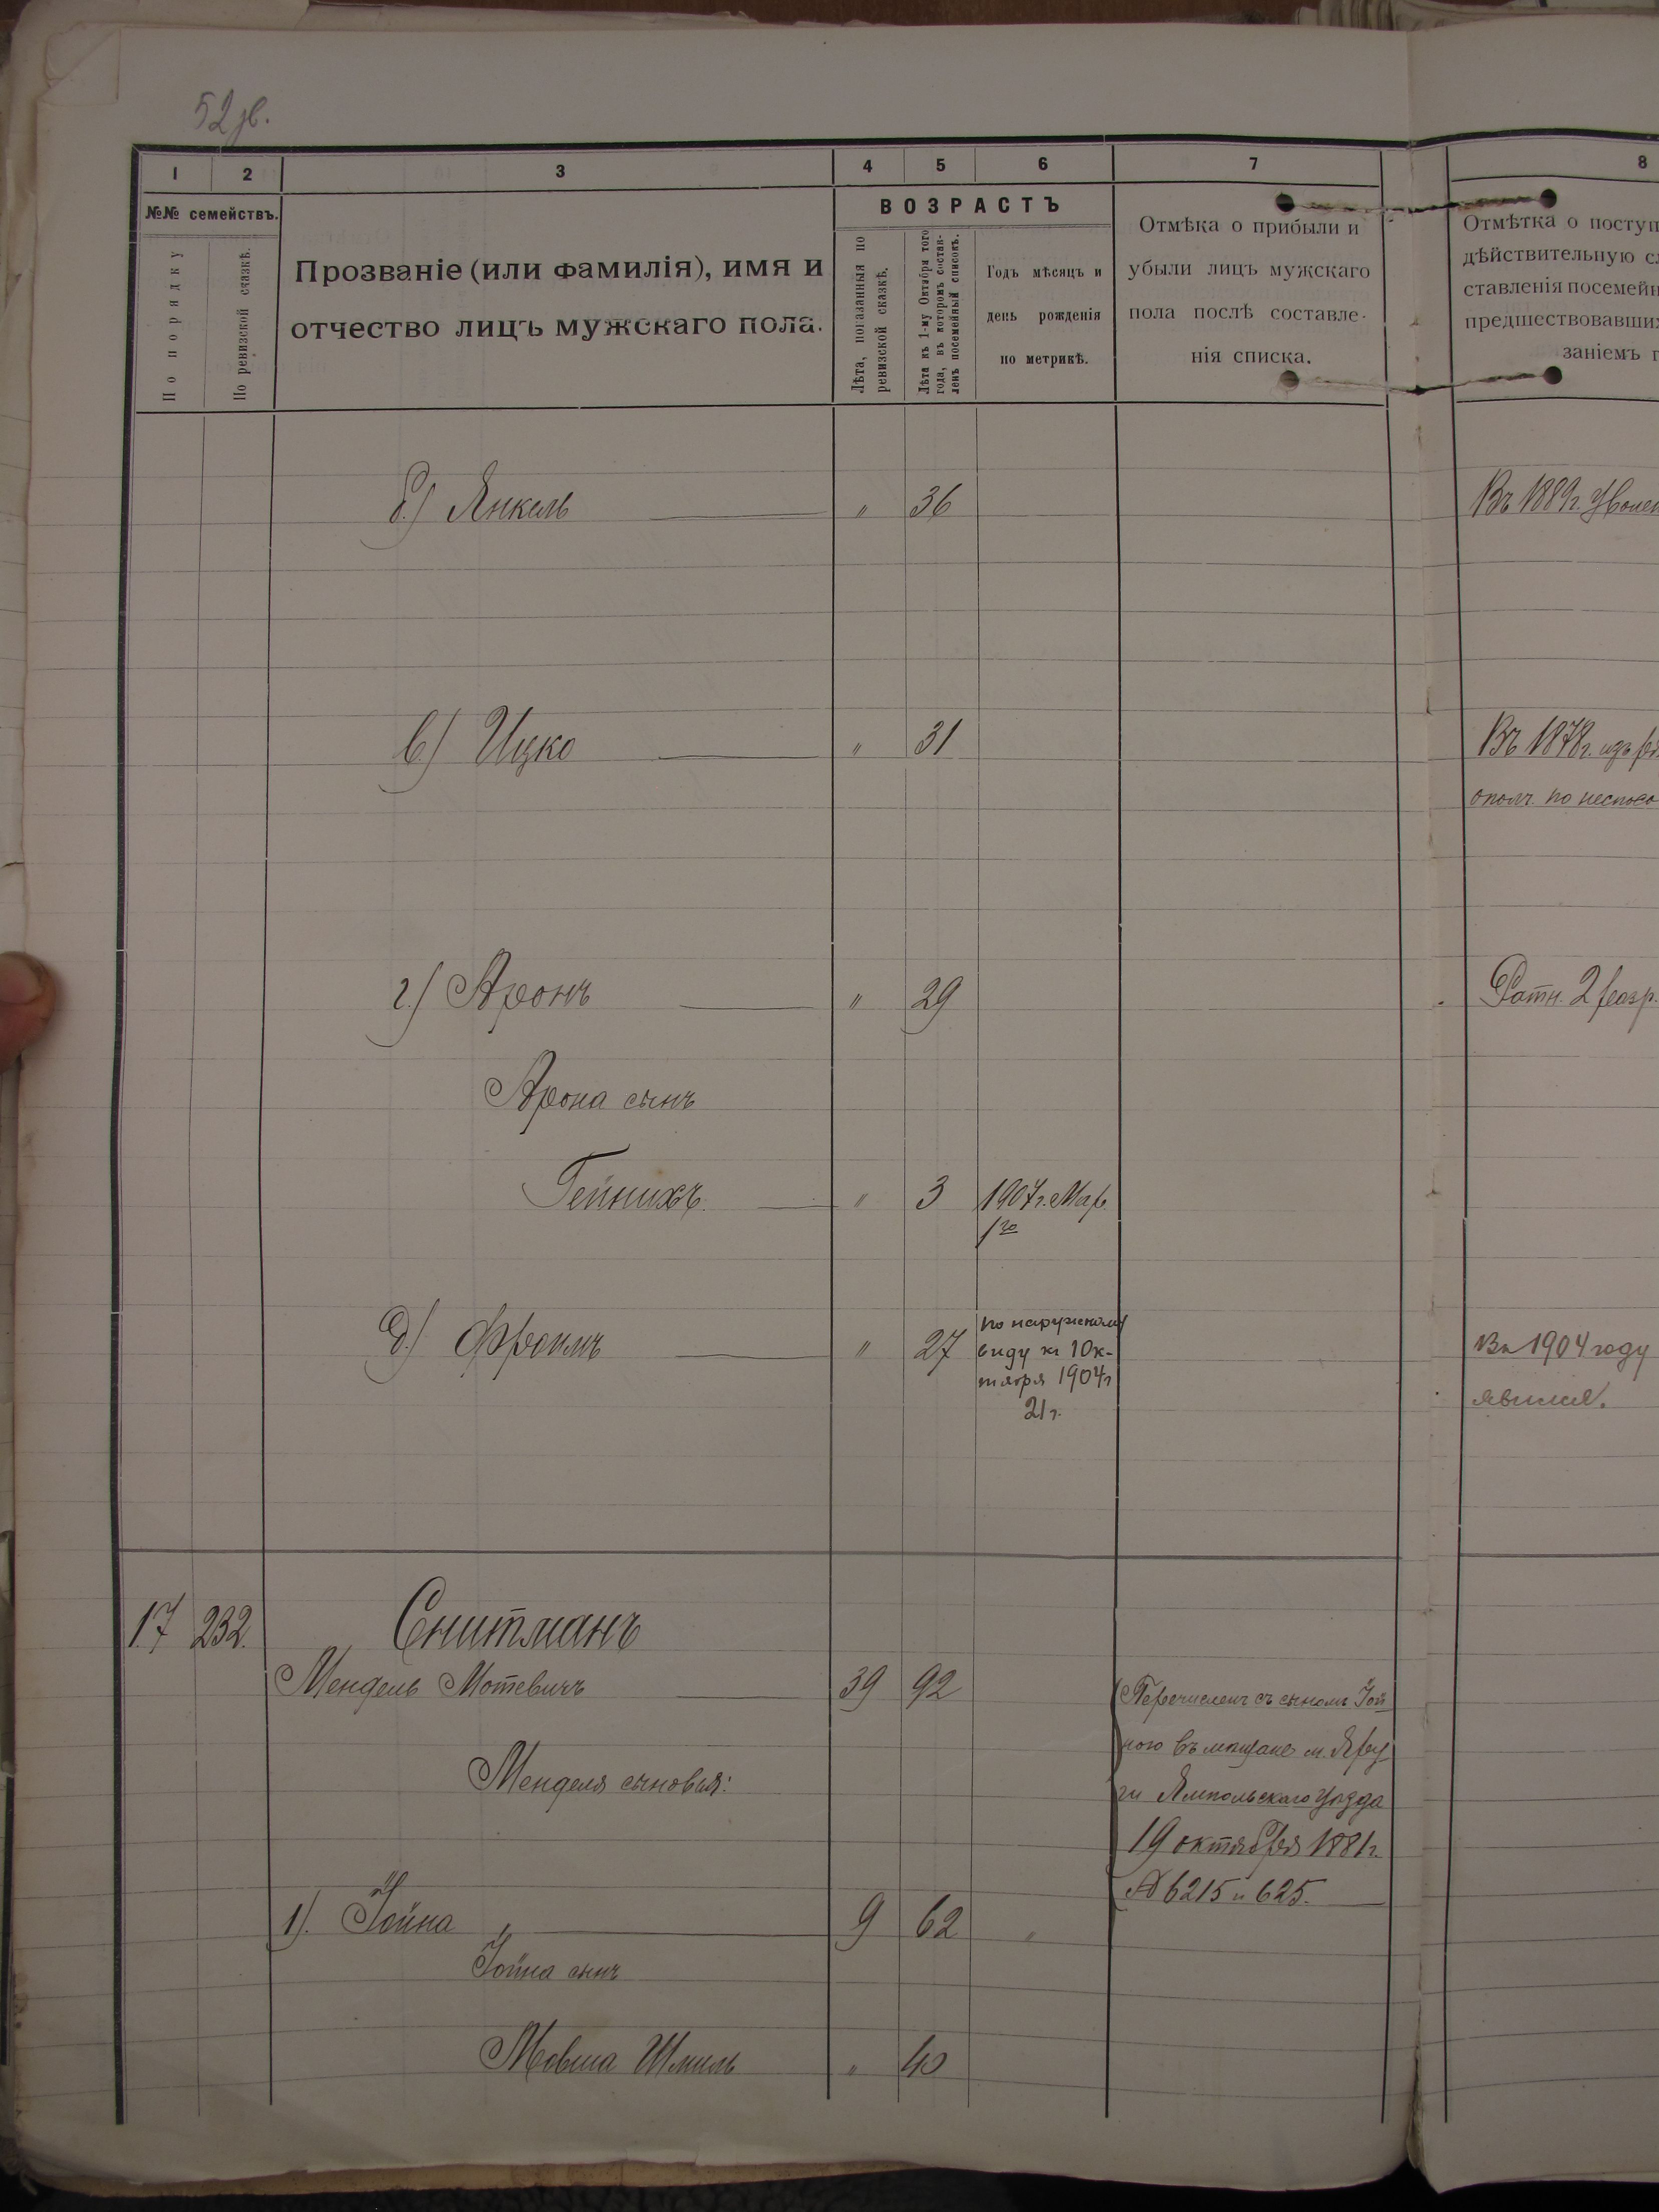 52 зв.
1 2 3 4 5 6 7 8
№№ семействъ.
По порядку
По ревизской сказкѣ.
Прозваніе (или фамилія), имя и
отчество лицъ мужскаго пола.
ВОЗРАСТЪ
Лѣта, показанныя по
ревизской сказкѣ.
Лѣта къ 1-му Октября того
года, въ которомъ состав-
ленъ посемейный списокъ.
Годъ мѣсяцъ и
день рожденія
по метрикѣ.
Отмѣка о прибыли и
убыли лицъ мужскаго
пола послѣ составле-
нія списка.
Отмѣтка о поступ
дѣйствительную сл
ставленія посемейн
предшествовавших
заніемъ г
б.) Янкель " 36 Въ 1889г. Уволен
в) Ицко " 31 Въ 1878г. изъ
ополч. по неспосо
г.) Аронъ " 29 Ратн. 2 разр.
Арона сынъ
Гейнихъ. " 3 1907г. Мар.
1го
д) Фроимъ " 27 по наружному
виду къ 1 Ок-
тября 1904г
21г.
Въ 1904 году
явился.
17 232. Снитманъ
Мендель Мотевичъ 39 92
Перечисленъ съ сыномъ Іой
ною въ мѣщане м. Яру
ги Ямпольскаго уѣзда
19 октября 1881г.
№ 6215 и 625.
Менделя сыновья:
1). Іойна " 9 62 "
Іойна сынъ
Мовша Шмиль " 40